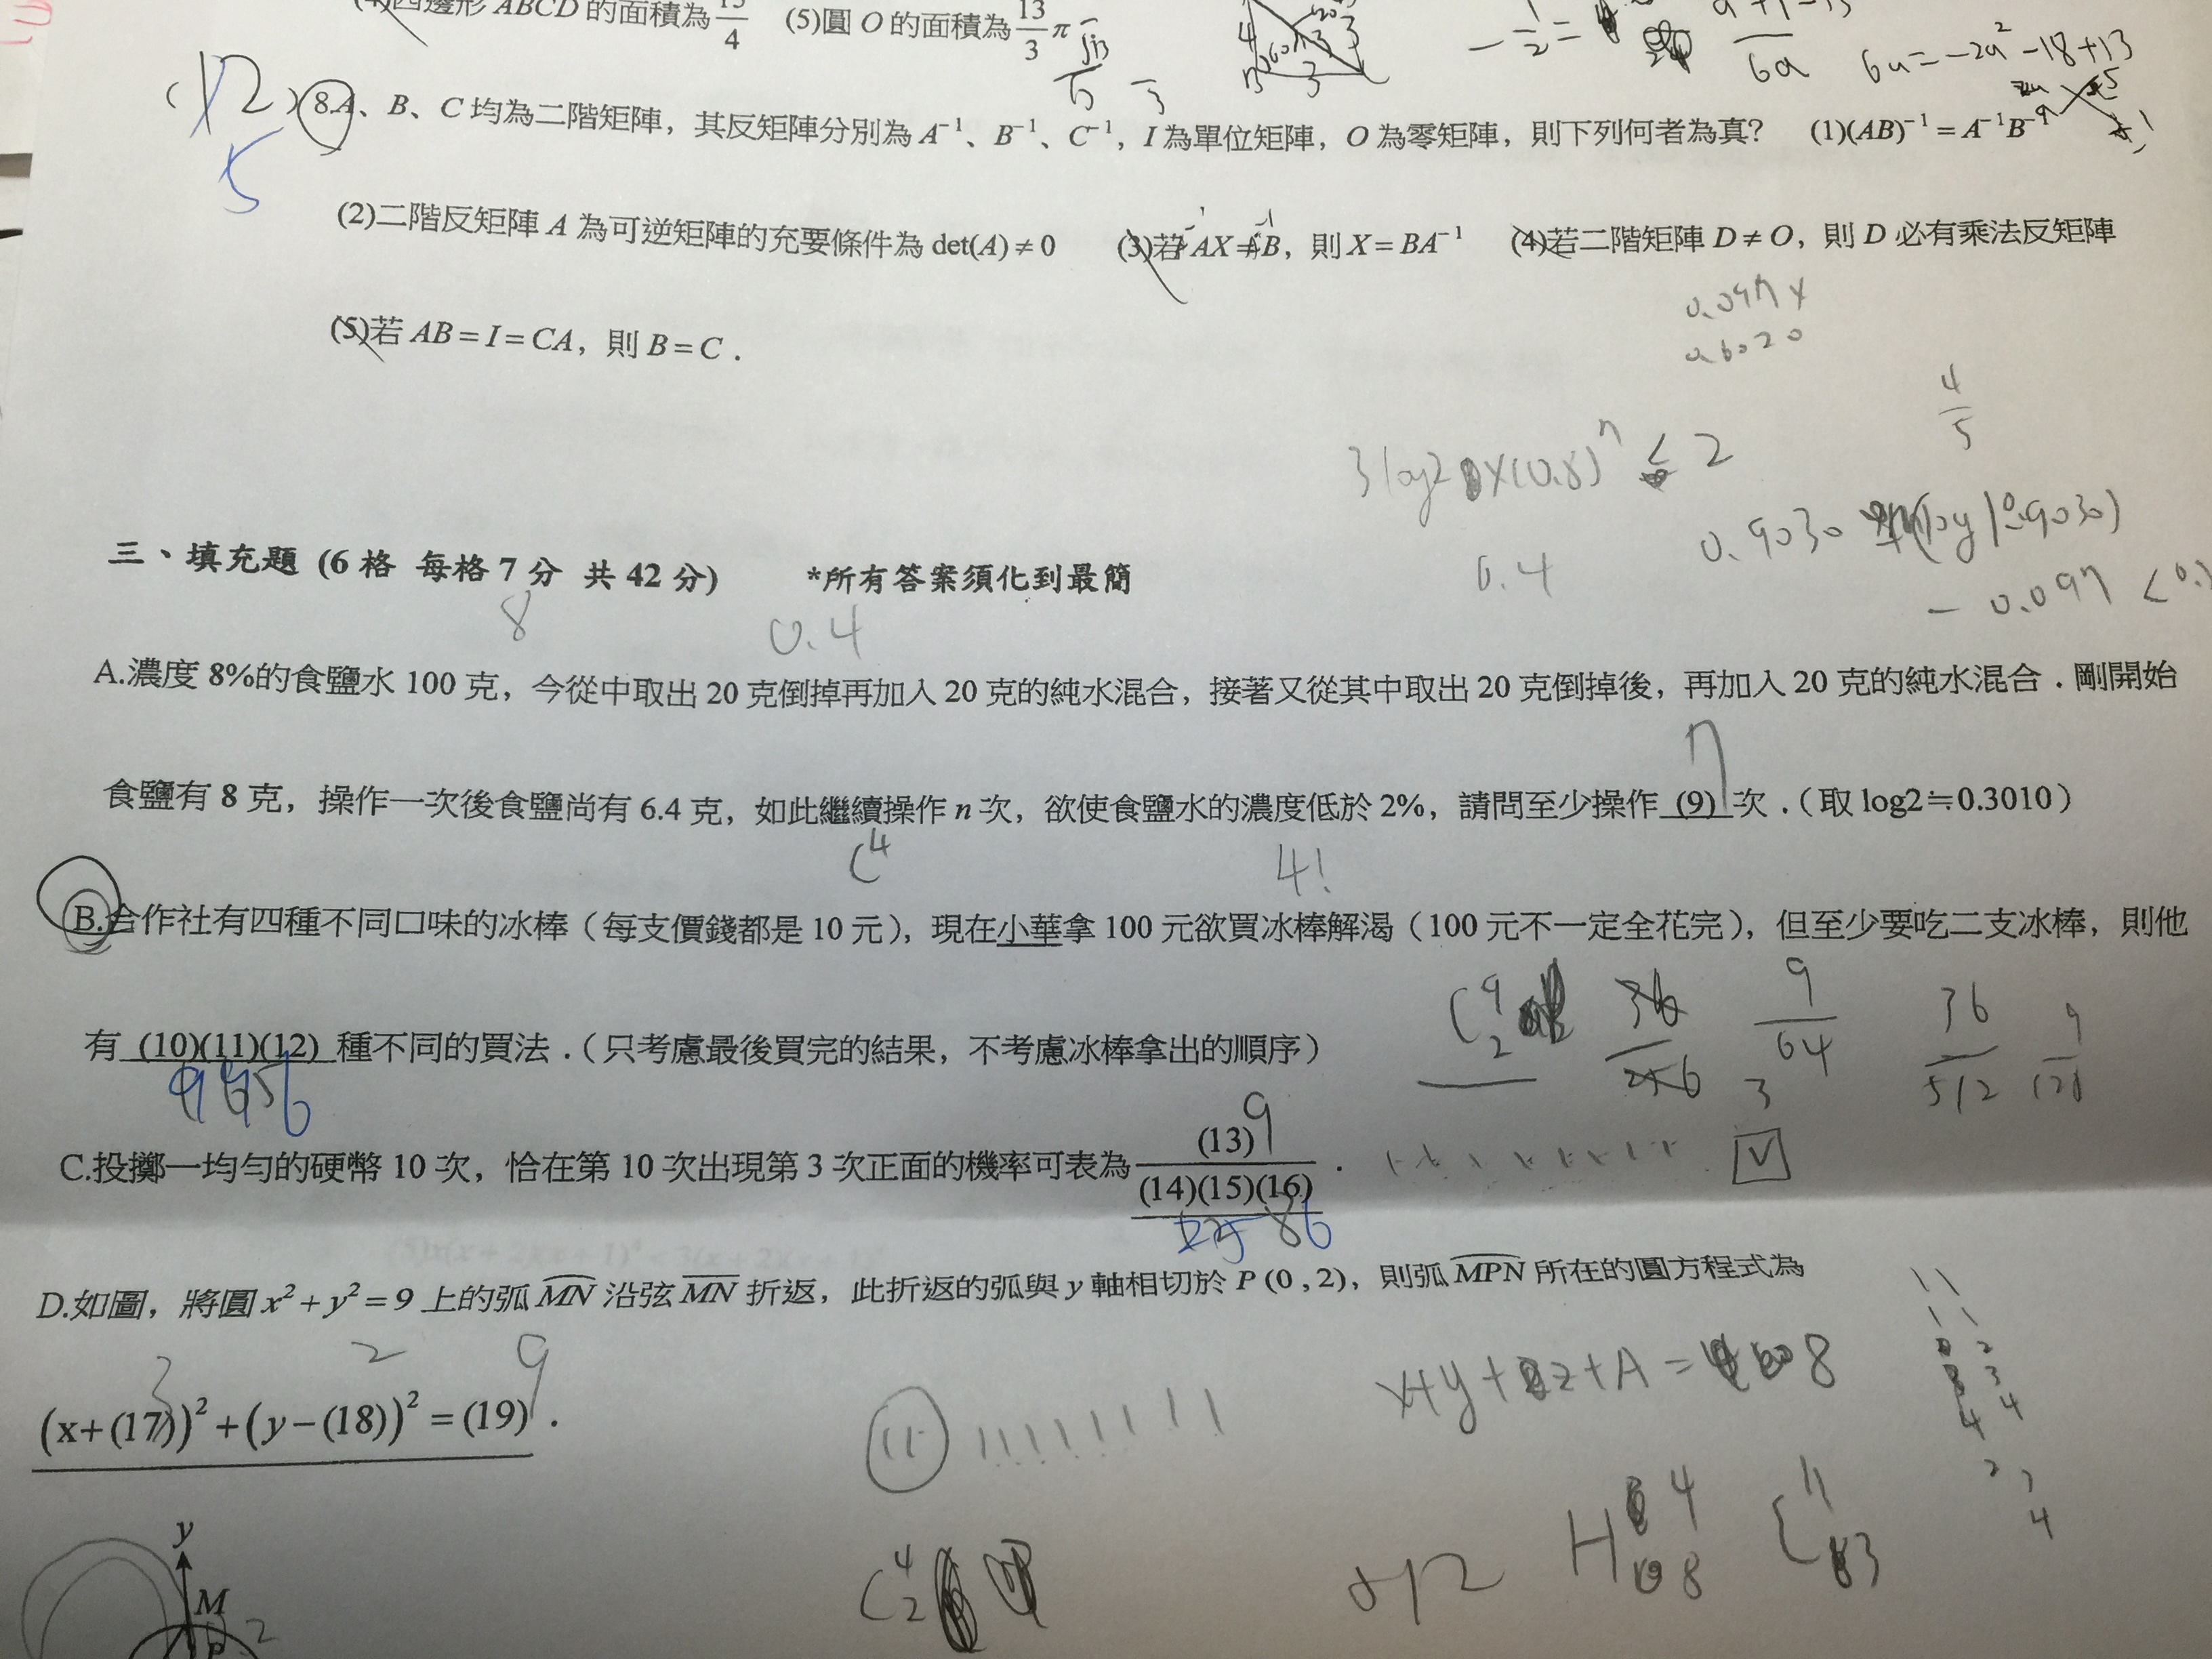 (4)四邊形 ABCD 的面積為 13/4 (5)圓 O 的面積為 13/3 π
6a = -2a² - 18 + 13
8.A、B、C 均為二階矩陣，其反矩陣分別為 A⁻¹、B⁻¹、C⁻¹，I 為單位矩陣，O 為零矩陣，則下列何者為真？ (1)(AB)⁻¹ = A⁻¹B⁻¹
(2)二階反矩陣 A 為可逆矩陣的充要條件為 det(A) ≠ 0 (3)若 AX = B，則 X = BA⁻¹ (4)若二階矩陣 D ≠ O，則 D 必有乘法反矩陣
(5)若 AB = I = CA，則 B = C．
4/5
三、填充題 (6 格 每格 7 分 共 42 分) *所有答案須化到最簡
8 0.4 0.4
A.濃度 8%的食鹽水 100 克，今從中取出 20 克倒掉再加入 20 克的純水混合，接著又從其中取出 20 克倒掉後，再加入 20 克的純水混合．剛開始
食鹽有 8 克，操作一次後食鹽尚有 6.4 克，如此繼續操作 n 次，欲使食鹽水的濃度低於 2%，請問至少操作 (9) 次．（取 log2≒0.3010）
C⁴ 4!
B.合作社有四種不同口味的冰棒（每支價錢都是 10 元），現在小華拿 100 元欲買冰棒解渴（100 元不一定全花完），但至少要吃二支冰棒，則他
有 (10)(11)(12) 種不同的買法．（只考慮最後買完的結果，不考慮冰棒拿出的順序）
9/64 36/512
C.投擲一均勻的硬幣 10 次，恰在第 10 次出現第 3 次正面的機率可表為 (13)/(14)(15)(16)．
D.如圖，將圓 x² + y² = 9 上的弧 MN 沿弦 MN 折返，此折返的弧與 y 軸相切於 P (0 , 2)，則弧 MPN 所在的圓方程式為
3 2 9
(x+(17))² + (y−(18))² = (19)．
y
M
P
2